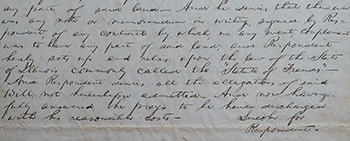 any part of said land - And he denies that there
was any note or memorandum in writing, signed by Res-
pondent of any contract by which complainant
was to have any part of said land, and Respondent
hereby sets up and relies upon the law of the State
of Illinois commonly called the "Statute of Frauds" -
And Respondent denies all the allegations of said
Bill, not heretofore admitted. And now having
fully answered he prays to be hence discharged
with his reasonable costs -
Lincoln for
Respondent -